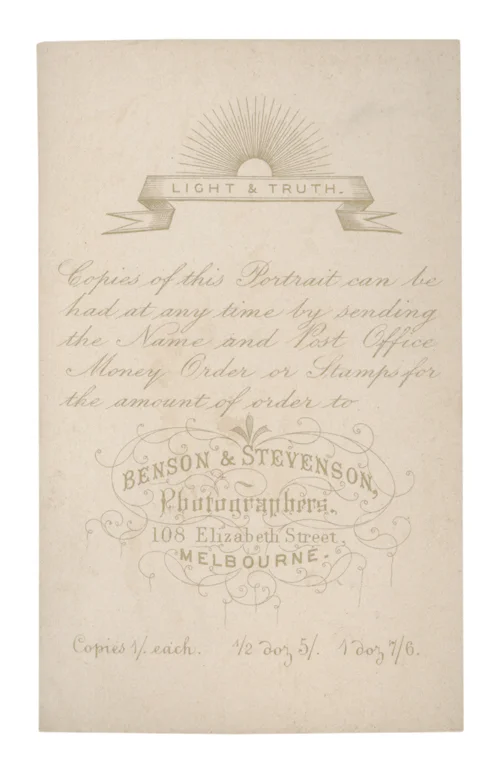 LIGHT & TRUTH.
Copies of this Portrait can be
had at any time by sending
the Name and Post Office
Money Order or Stamps for
the amount of order to
BENSON & STEVENSON,
Photographers.
108 Elizabeth Street,
MELBOURNE.
Copies 1/. each. 1/2 doz 5/. 1 doz 7/6.